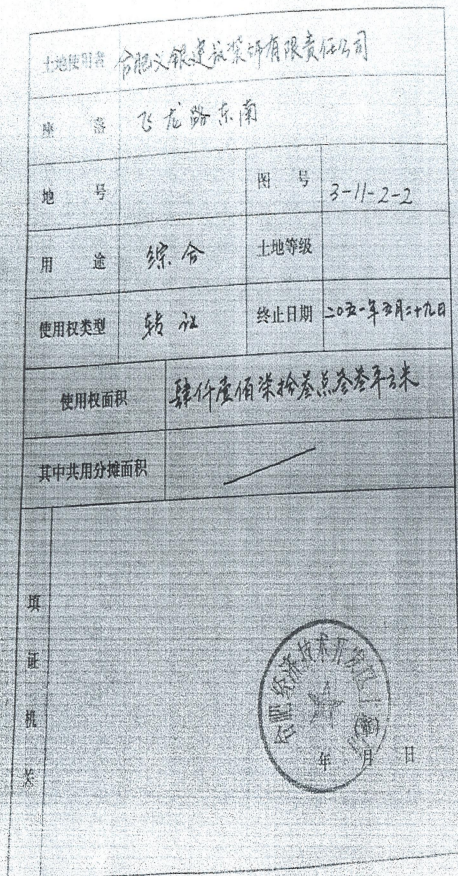 土地使用者 合肥义银建设装饰有限责任公司
座 落 飞龙路东南
地 号 图 号 3-11-2-2
用 途 综合 土地等级
使用权类型 转让 终止日期 二〇五一年五月二十九日
使用权面积 肆仟壹佰柒拾叁点叁叁平方米
其中共用分摊面积
填证机关
合肥经济技术开发区土
年 月 日